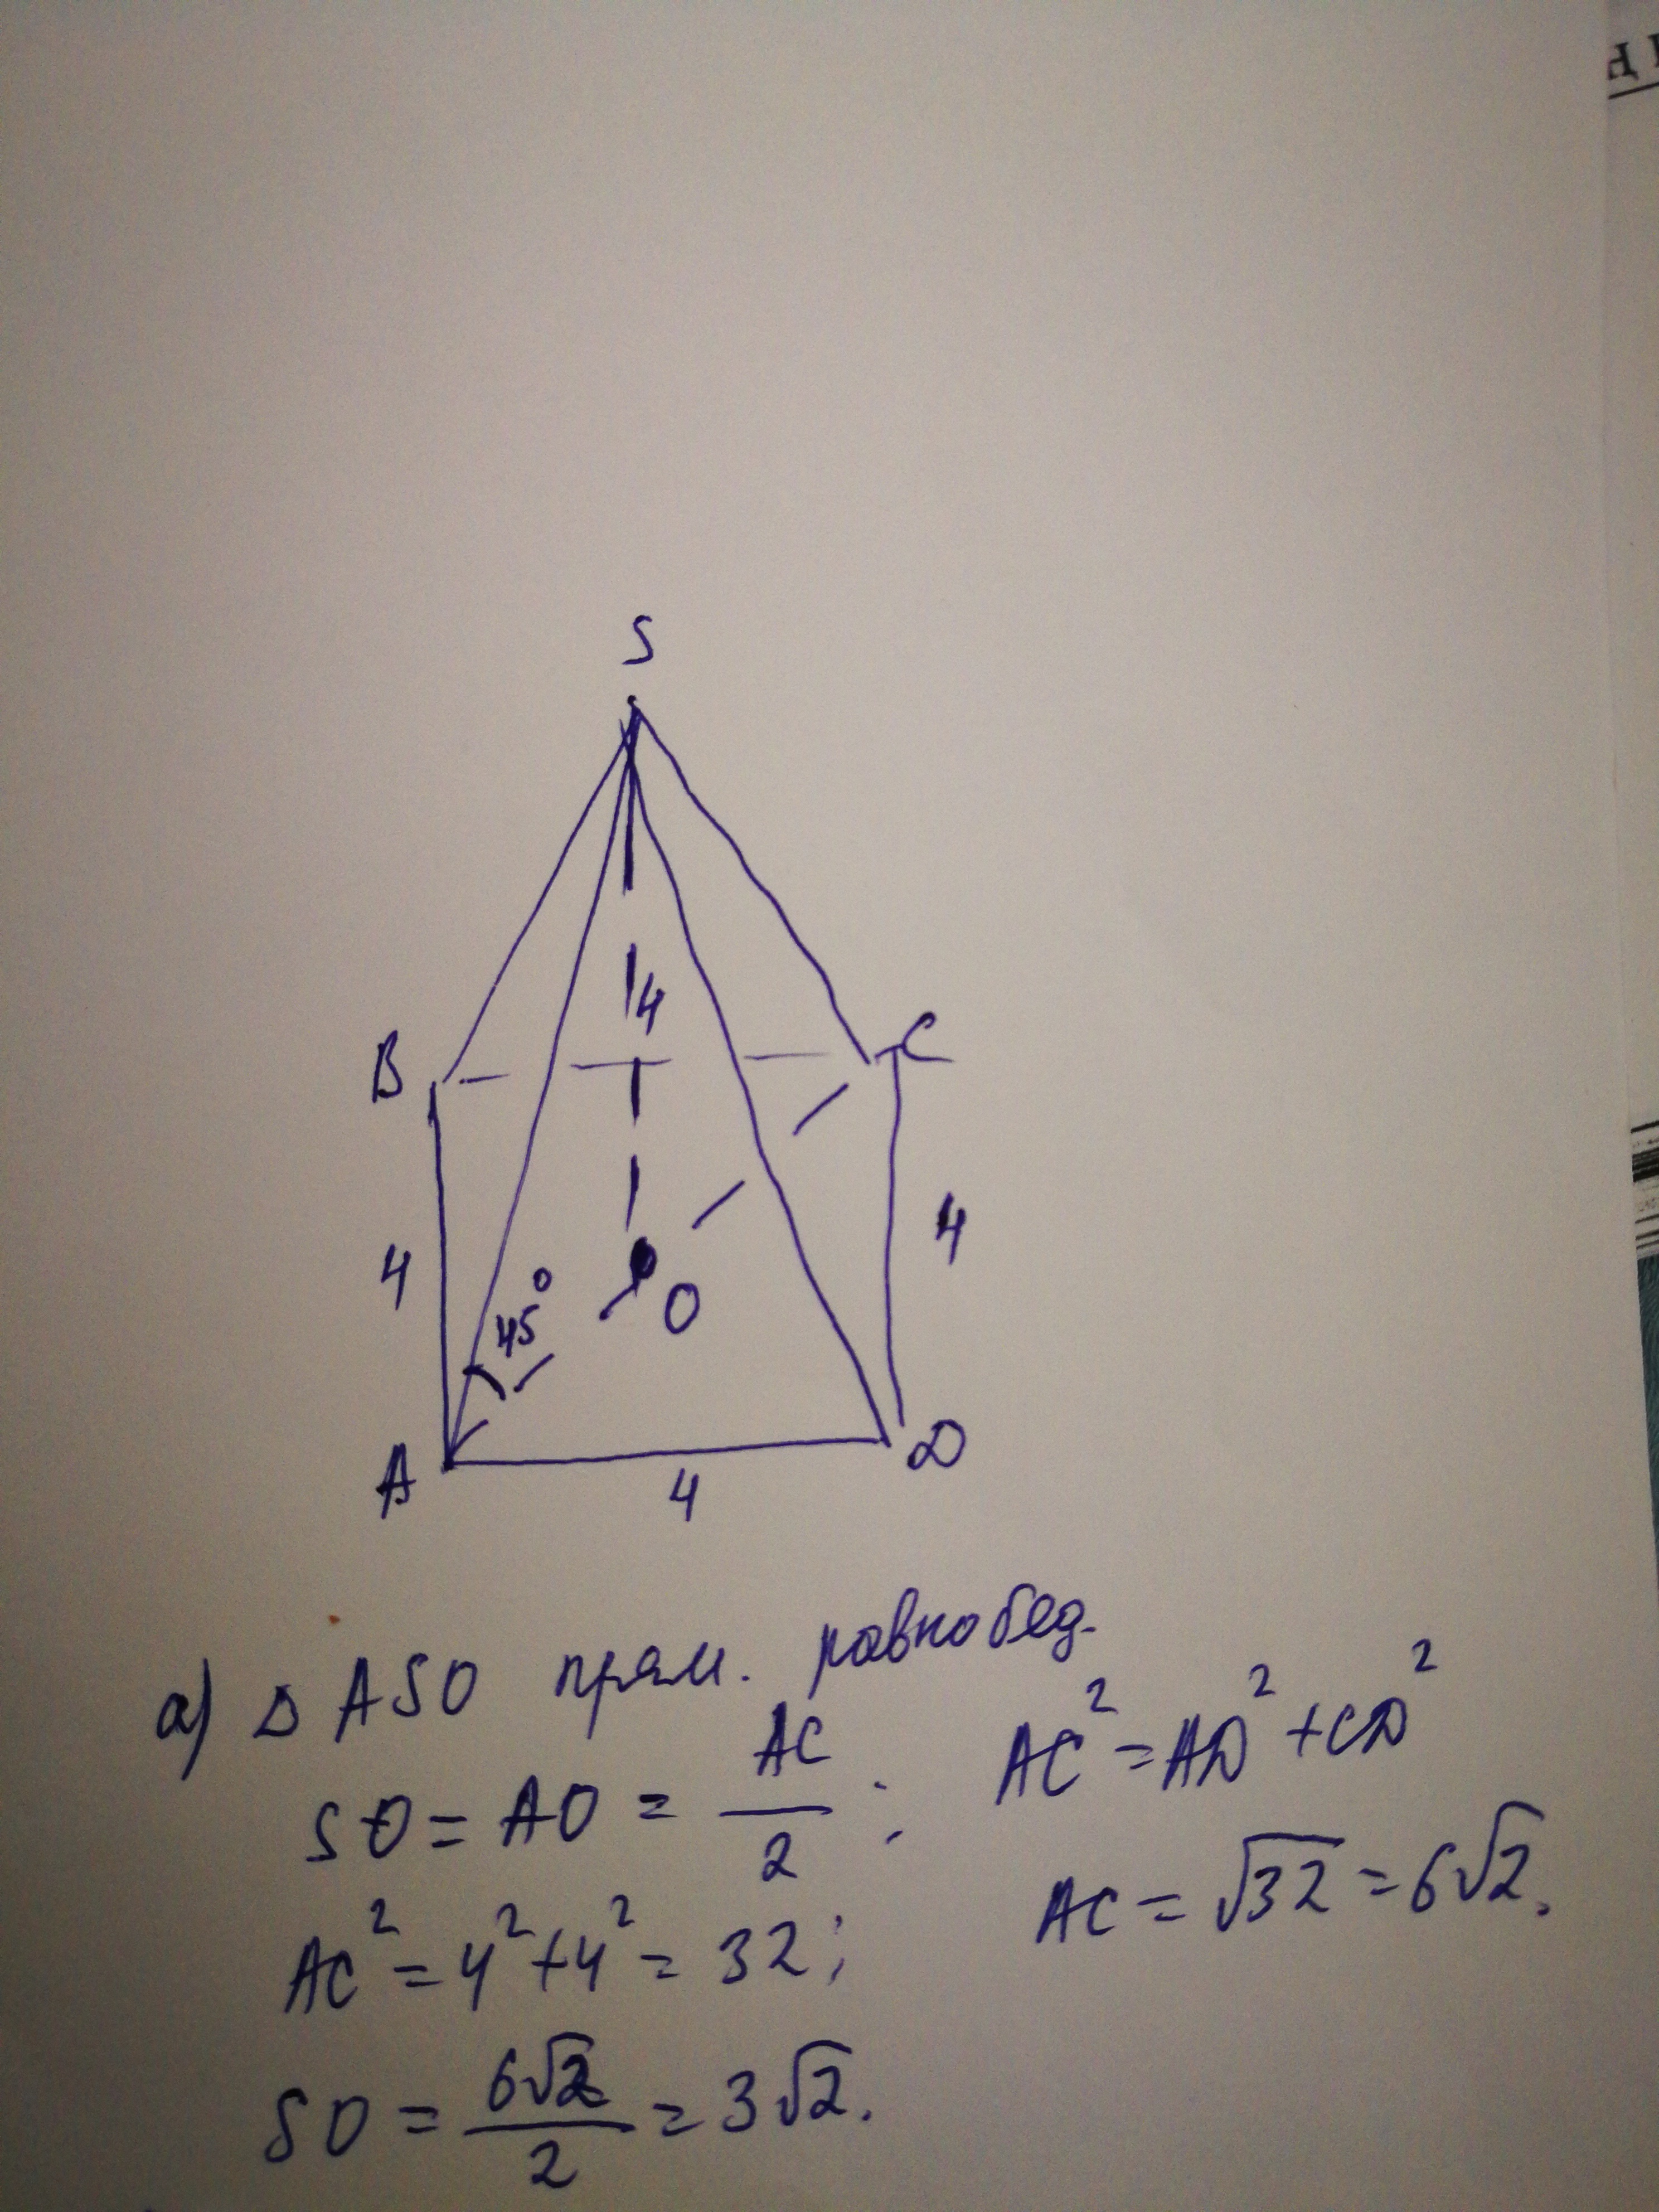 S
4
B
C
4
4
45°
O
A
D
4
а) Δ ASO прям. равнобед.
SO = AO = AC/2 ; AC² = AD² + CD²
AC² = 4² + 4² = 32; AC = √32 = 6√2.
SO = 6√2/2 = 3√2.